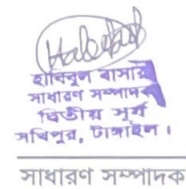 হাবিবুল বাসার
সাধারণ সম্পাদক
দ্বিতীয় সূর্য
সখিপুর, টাঙ্গাইল।
সাধারণ সম্পাদক